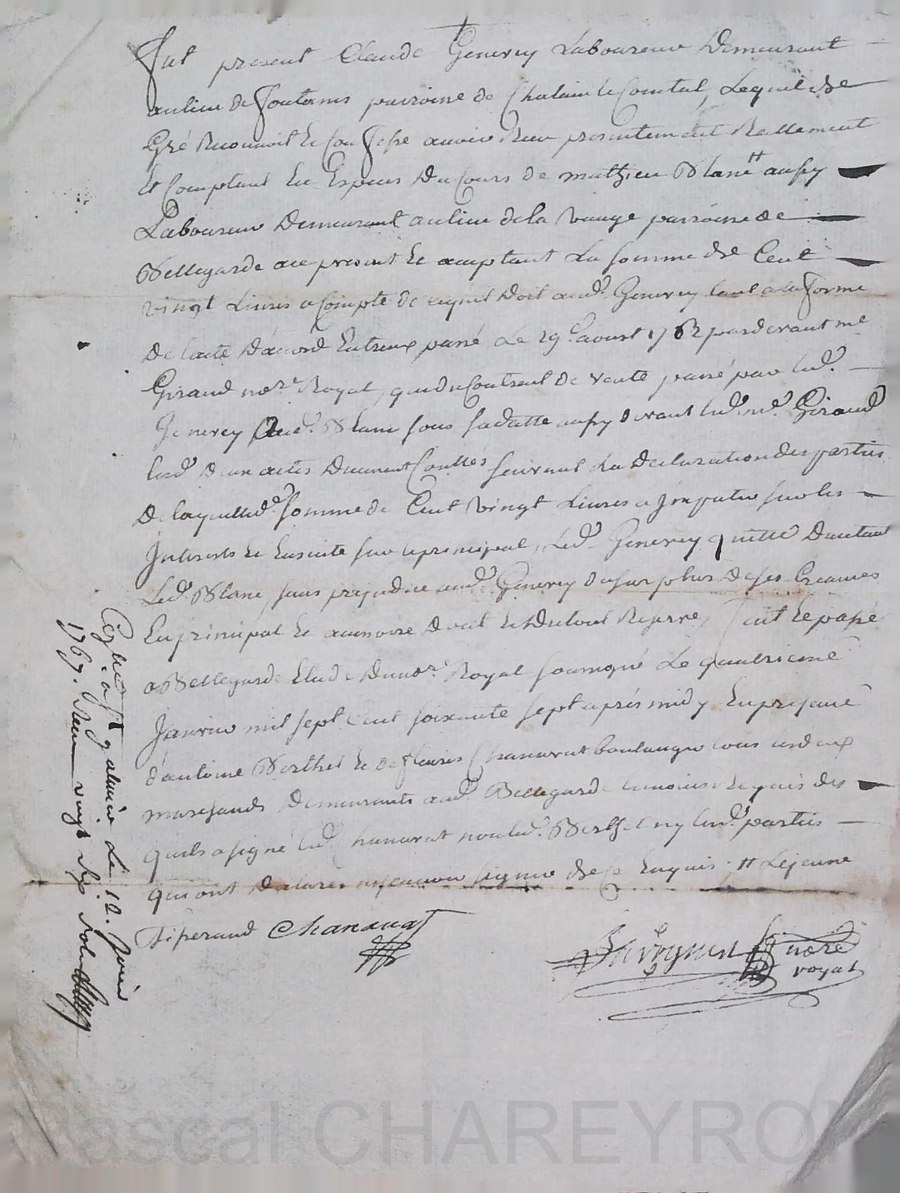 Fut present Claude Generey Laboureur Demeurant
au lieu de parroisse de Chalain le Comtal, Lequel de
Gré Reconnoit et Confesse avoir Reçu presentement Reellement
et Comptant En Especes Du Cours de mathieu Blanc # aussy
Laboureur Demeurant au lieu de la Vauge parroisse de
Bellegarde ace present et acceptant La somme de Cent
vingt Livres acompte de ce quil doit aud. Generey tant a la forme
De lacte Dacord Entreux passé Le 29e aoust 1762 pardevant me
Giraud nore Royal, que du Contrat de vente passé par led.
Generey aud. Blanc sous sa datte aussy devant led. me Giraud
lesd. deux actes Duement Conttes suivant La Declaration des parties
De laquelle de. somme de Cent vingt Livres a Imputer sur les
Interets et Ensuite sur le principal, Led. Generey quitte Dautant
Led. Blanc, sans prejudice aud. Generey du surplus de ses Creances
En principal et accessoire dont Est du tout Reservé, fait et passé
a Bellegarde Etude du nore Royal soussigné Le quatrieme
Janvier mil sept Cent soixante sept après midy En presence
d'antoine Berthet et de fleuris Chanavat boulanger tous les deux
marchands Demeurants aud. Bellegarde temoins requis des
quels a signé led. Chanavat non led. Berthet ny lesd. parties
qui ont declaré ne savoir signer de ce Enquis. # Le jeune
Chanavat
nore
royal
Le 12. Janvier
1767. Reçu vingt six sols
Pascal CHAREYRON